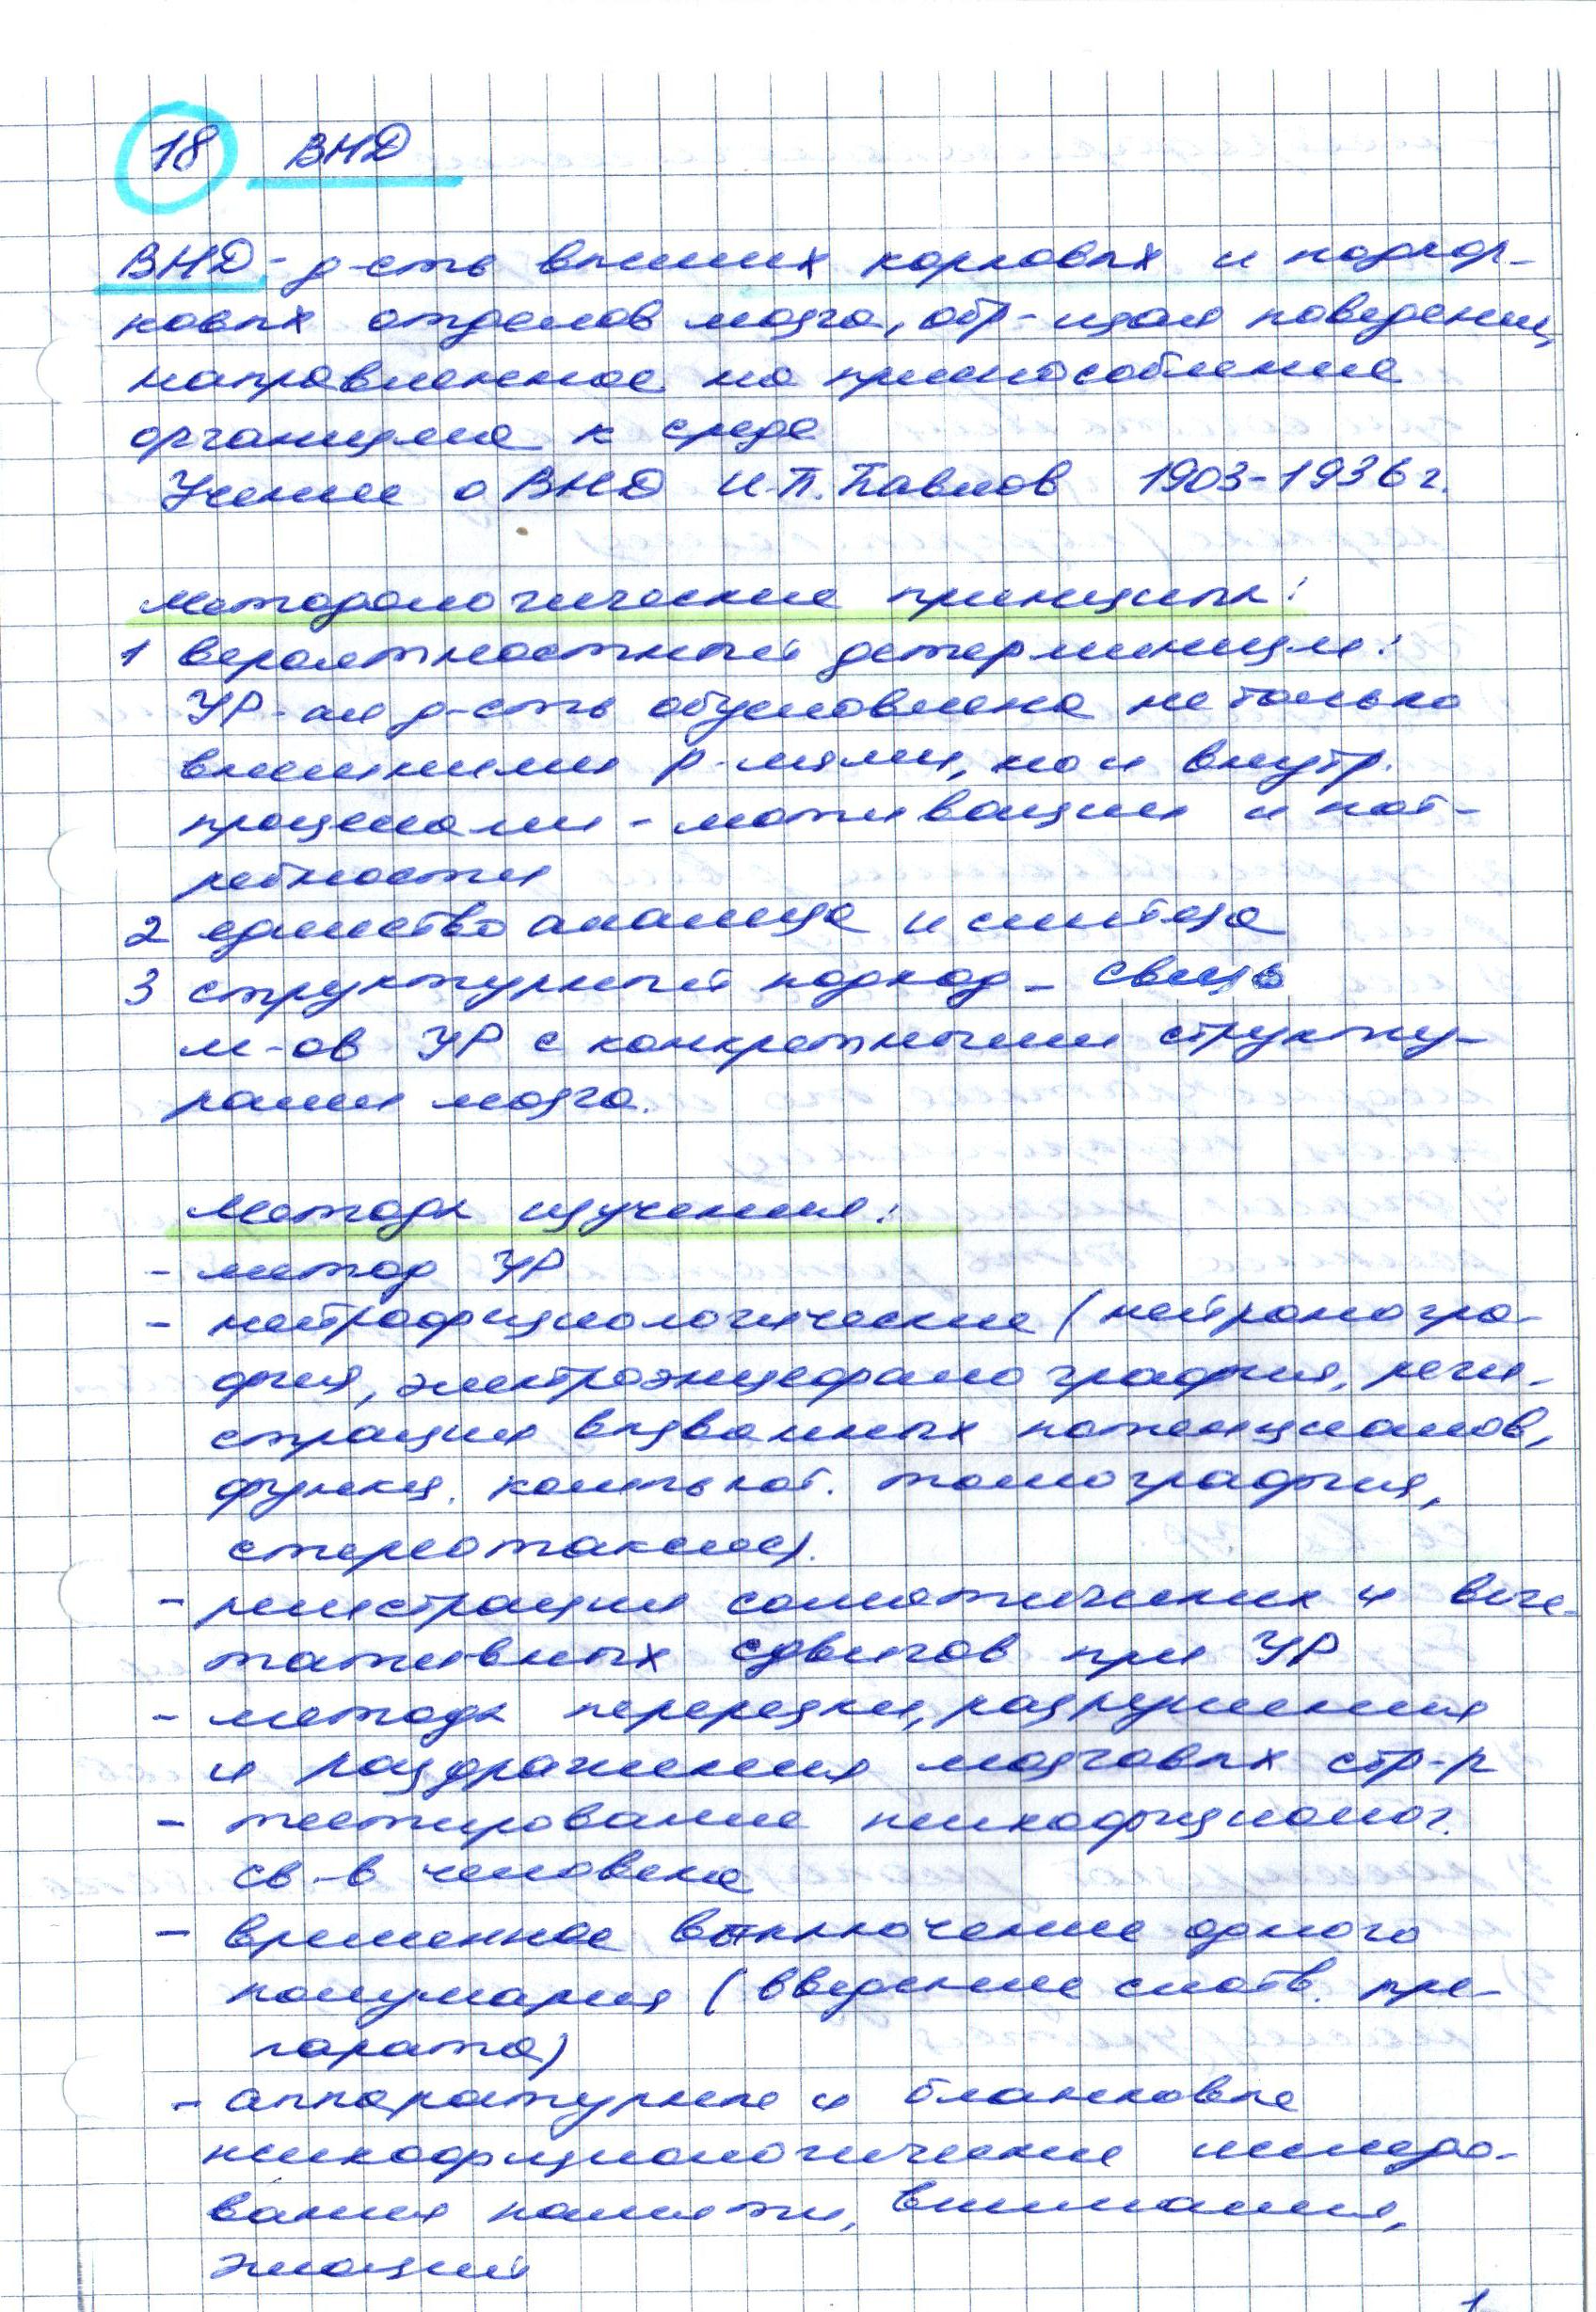 18 ВНД
ВНД - д-сть высших корковых и подкор-
ковых отделов мозга, обр-щая поведение,
направленное на приспособление
организма к среде
Учение о ВНД И.П. Павлов 1903-1936 г.
Методологические принципы:
1 вероятностный детерминизм:
УР-ая д-сть обусловлена не только
внешними р-лями, но и внутр.
процессами - мотивации и пот-
ребности
2 единство анализа и синтеза
3 структурный подход - связь
м-ов УР с конкретными структу-
рами мозга.
Методы изучения:
- метод УР
- нейрофизиологические (нейроногра-
фия, электроэнцефалография, реги-
страция вызванных потенциалов,
функц. компьют. томография,
стереотаксис).
- регистрация соматических и веге-
тативных сдвигов при УР
- методы перерезки, разрушения
и раздражения мозговых стр-р
- тестирование психофизиолог.
св-в человека
- временное выключение одного
полушария (введение снотв. пре-
парата)
- аппаратурные и бланковые
психофизиологические исследо-
вания памяти, внимания,
эмоций
1